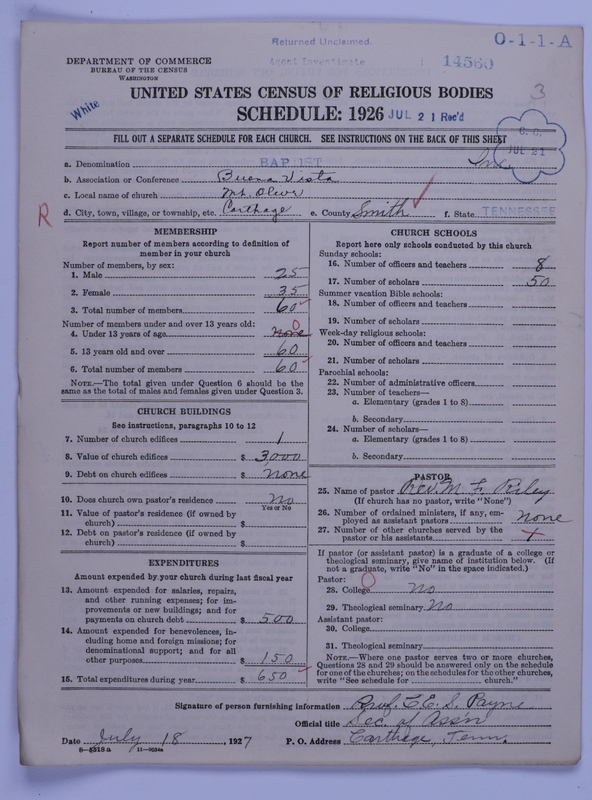 Returned Unclaimed.
O-1-1-A
Agent Investigate
14560
DEPARTMENT OF COMMERCE
BUREAU OF THE CENSUS
WASHINGTON
White
UNITED STATES CENSUS OF RELIGIOUS BODIES
3
SCHEDULE: 1926 JUL 21 Rec'd
C. C.
JUL 21
FILL OUT A SEPARATE SCHEDULE FOR EACH CHURCH. SEE INSTRUCTIONS ON THE BACK OF THIS SHEET
a. Denomination BAPTIST
b. Association or Conference Buena Vista
c. Local name of church Mt. Olive
R
d. City, town, village, or township, etc. Carthage e. County Smith f. State TENNESSEE
MEMBERSHIP
Report number of members according to definition of
member in your church
Number of members, by sex:
1. Male 25
2. Female 35
3. Total number of members 60
Number of members under and over 13 years old:
0
4. Under 13 years of age none
5. 13 years old and over 60
6. Total number of members 60
NOTE.—The total given under Question 6 should be the
same as the total of males and females given under Question 3.
CHURCH BUILDINGS
See instructions, paragraphs 10 to 12
7. Number of church edifices 1
8. Value of church edifices $ 3,000
9. Debt on church edifices $ none
10. Does church own pastor's residence No
Yes or No
11. Value of pastor's residence (if owned by
church) $
12. Debt on pastor's residence (if owned by
church) $
EXPENDITURES
Amount expended by your church during last fiscal year
13. Amount expended for salaries, repairs,
and other running expenses; for im-
provements or new buildings; and for
payments on church debt $ 500
14. Amount expended for benevolences, in-
cluding home and foreign missions; for
denominational support; and for all
other purposes $ 150
15. Total expenditures during year $ 650
CHURCH SCHOOLS
Report here only schools conducted by this church
Sunday schools:
16. Number of officers and teachers 8
17. Number of scholars 50
Summer vacation Bible schools:
18. Number of officers and teachers
19. Number of scholars
Week-day religious schools:
20. Number of officers and teachers
21. Number of scholars
Parochial schools:
22. Number of administrative officers
23. Number of teachers—
a. Elementary (grades 1 to 8)
b. Secondary
24. Number of scholars—
a. Elementary (grades 1 to 8)
b. Secondary
PASTOR
25. Name of pastor Rev. M. F. Riley
(If church has no pastor, write "None")
26. Number of ordained ministers, if any, em-
ployed as assistant pastors none
27. Number of other churches served by the
pastor or his assistants
If pastor (or assistant pastor) is a graduate of a college or
theological seminary, give name of institution below. (If
not a graduate, write "No" in the space indicated.)
Pastor: 0
28. College No
29. Theological seminary No
Assistant pastor:
30. College
31. Theological seminary
NOTE.—Where one pastor serves two or more churches,
Questions 28 and 29 should be answered only on the schedule
for one of the churches; on the schedules for the other churches,
write "See schedule for church."
Signature of person furnishing information Prof. C. E. S. Payne
Official title Sec. of Ass'n
Date July 18, 1927 P. O. Address Carthage, Tenn.
8—5318a 11—9034a